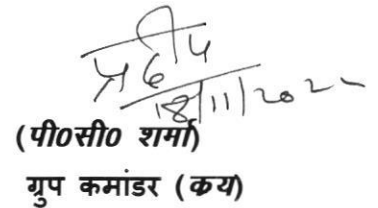 प्रदीप
18/11/202
(पी0सी0 शर्मा)
ग्रुप कमांडर (कय)